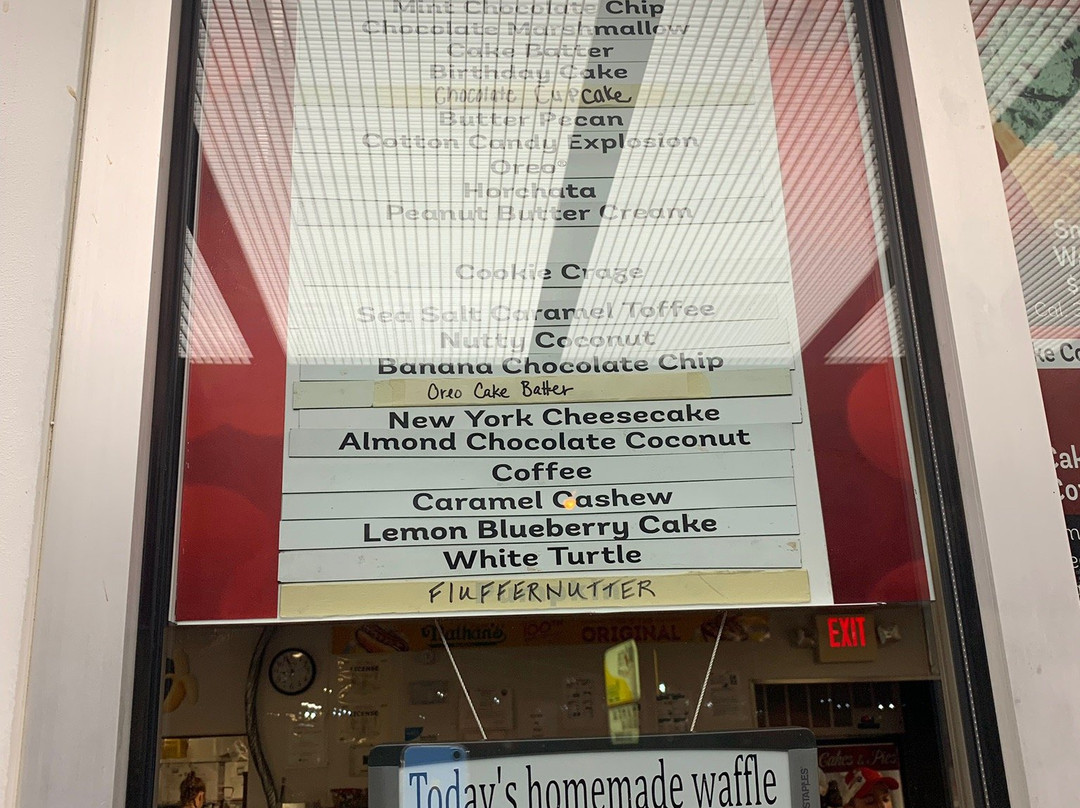 Mint Chocolate Chip
Chocolate Marshmallow
Cake Batter
Birthday Cake
Chocolate Cupcake
Butter Pecan
Cotton Candy Explosion
Oreo®
Horchata
Peanut Butter Cream
Cookie Craze
Sea Salt Caramel Toffee
Nutty Coconut
Banana Chocolate Chip
Oreo Cake Batter
New York Cheesecake
Almond Chocolate Coconut
Coffee
Caramel Cashew
Lemon Blueberry Cake
White Turtle
FlUFFERNUTTER
Nathan's
100TH
ORIGINAL
EXIT
LICENSE
LICENSE
Cakes & Pies
Today's homemade waffle
STAPLES